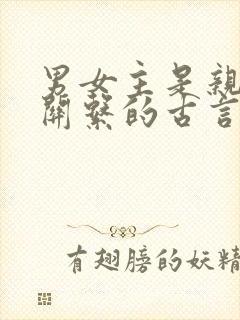 男女主是親
關繫的古言
有翅膀的妖精